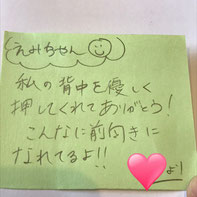 えみちゃん
私の背中を優しく
押してくれてありがとう!
こんなに前向きに
なれてるよ!!
より